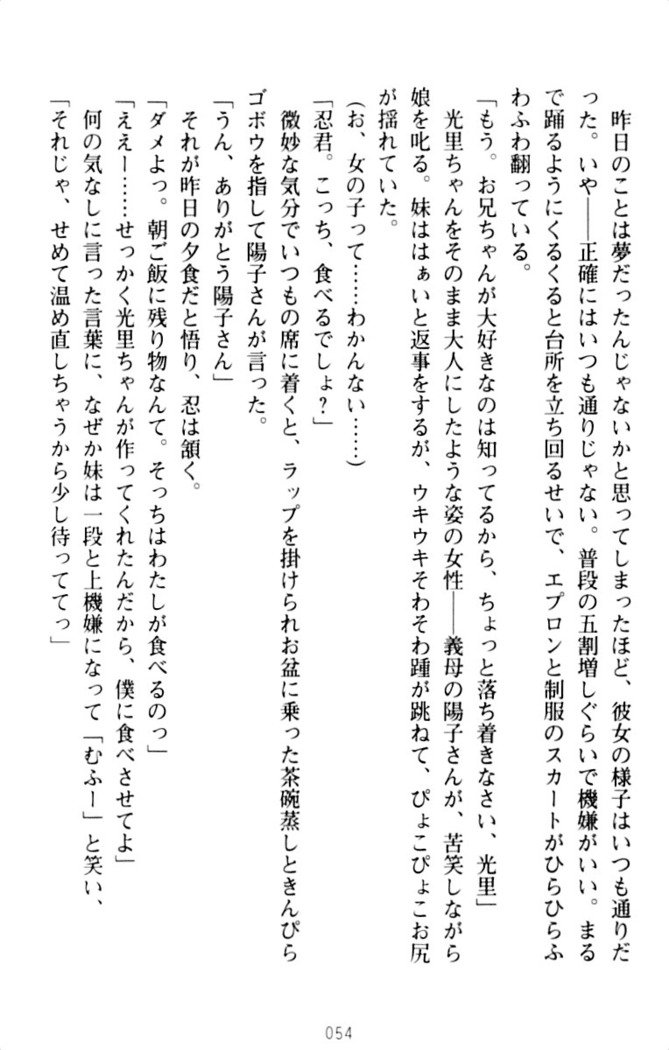 昨日のことは夢だったんじゃないかと思ってしまったほど、彼女の様子はいつも通りだ
った。いや――正確にはいつも通りじゃない。普段の五割増しぐらいで機嫌がいい。まる
で踊るようにくるくると台所を立ち回るせいで、エプロンと制服のスカートがひらひらふ
わふわ翻っている。
「もう。お兄ちゃんが大好きなのは知ってるから、ちょっと落ち着きなさい、光里」
光里ちゃんをそのまま大人にしたような姿の女性――義母の陽子さんが、苦笑しながら
娘を叱る。妹ははぁいと返事をするが、ウキウキそわそわ踵が跳ねて、ぴょこぴょこお尻
が揺れていた。
（お、女の子って……わかんない……）
「忍君。こっち、食べるでしょ？」
微妙な気分でいつもの席に着くと、ラップを掛けられお盆に乗った茶碗蒸しときんぴら
ゴボウを指して陽子さんが言った。
「うん、ありがとう陽子さん」
それが昨日の夕食だと悟り、忍は頷く。
「ダメよっ。朝ご飯に残り物なんて。そっちはわたしが食べるのっ」
「ええー……せっかく光里ちゃんが作ってくれたんだから、僕に食べさせてよ」
何の気なしに言った言葉に、なぜか妹は一段と上機嫌になって「むふー」と笑い、
「それじゃ、せめて温め直しちゃうから少し待っててっ」
054